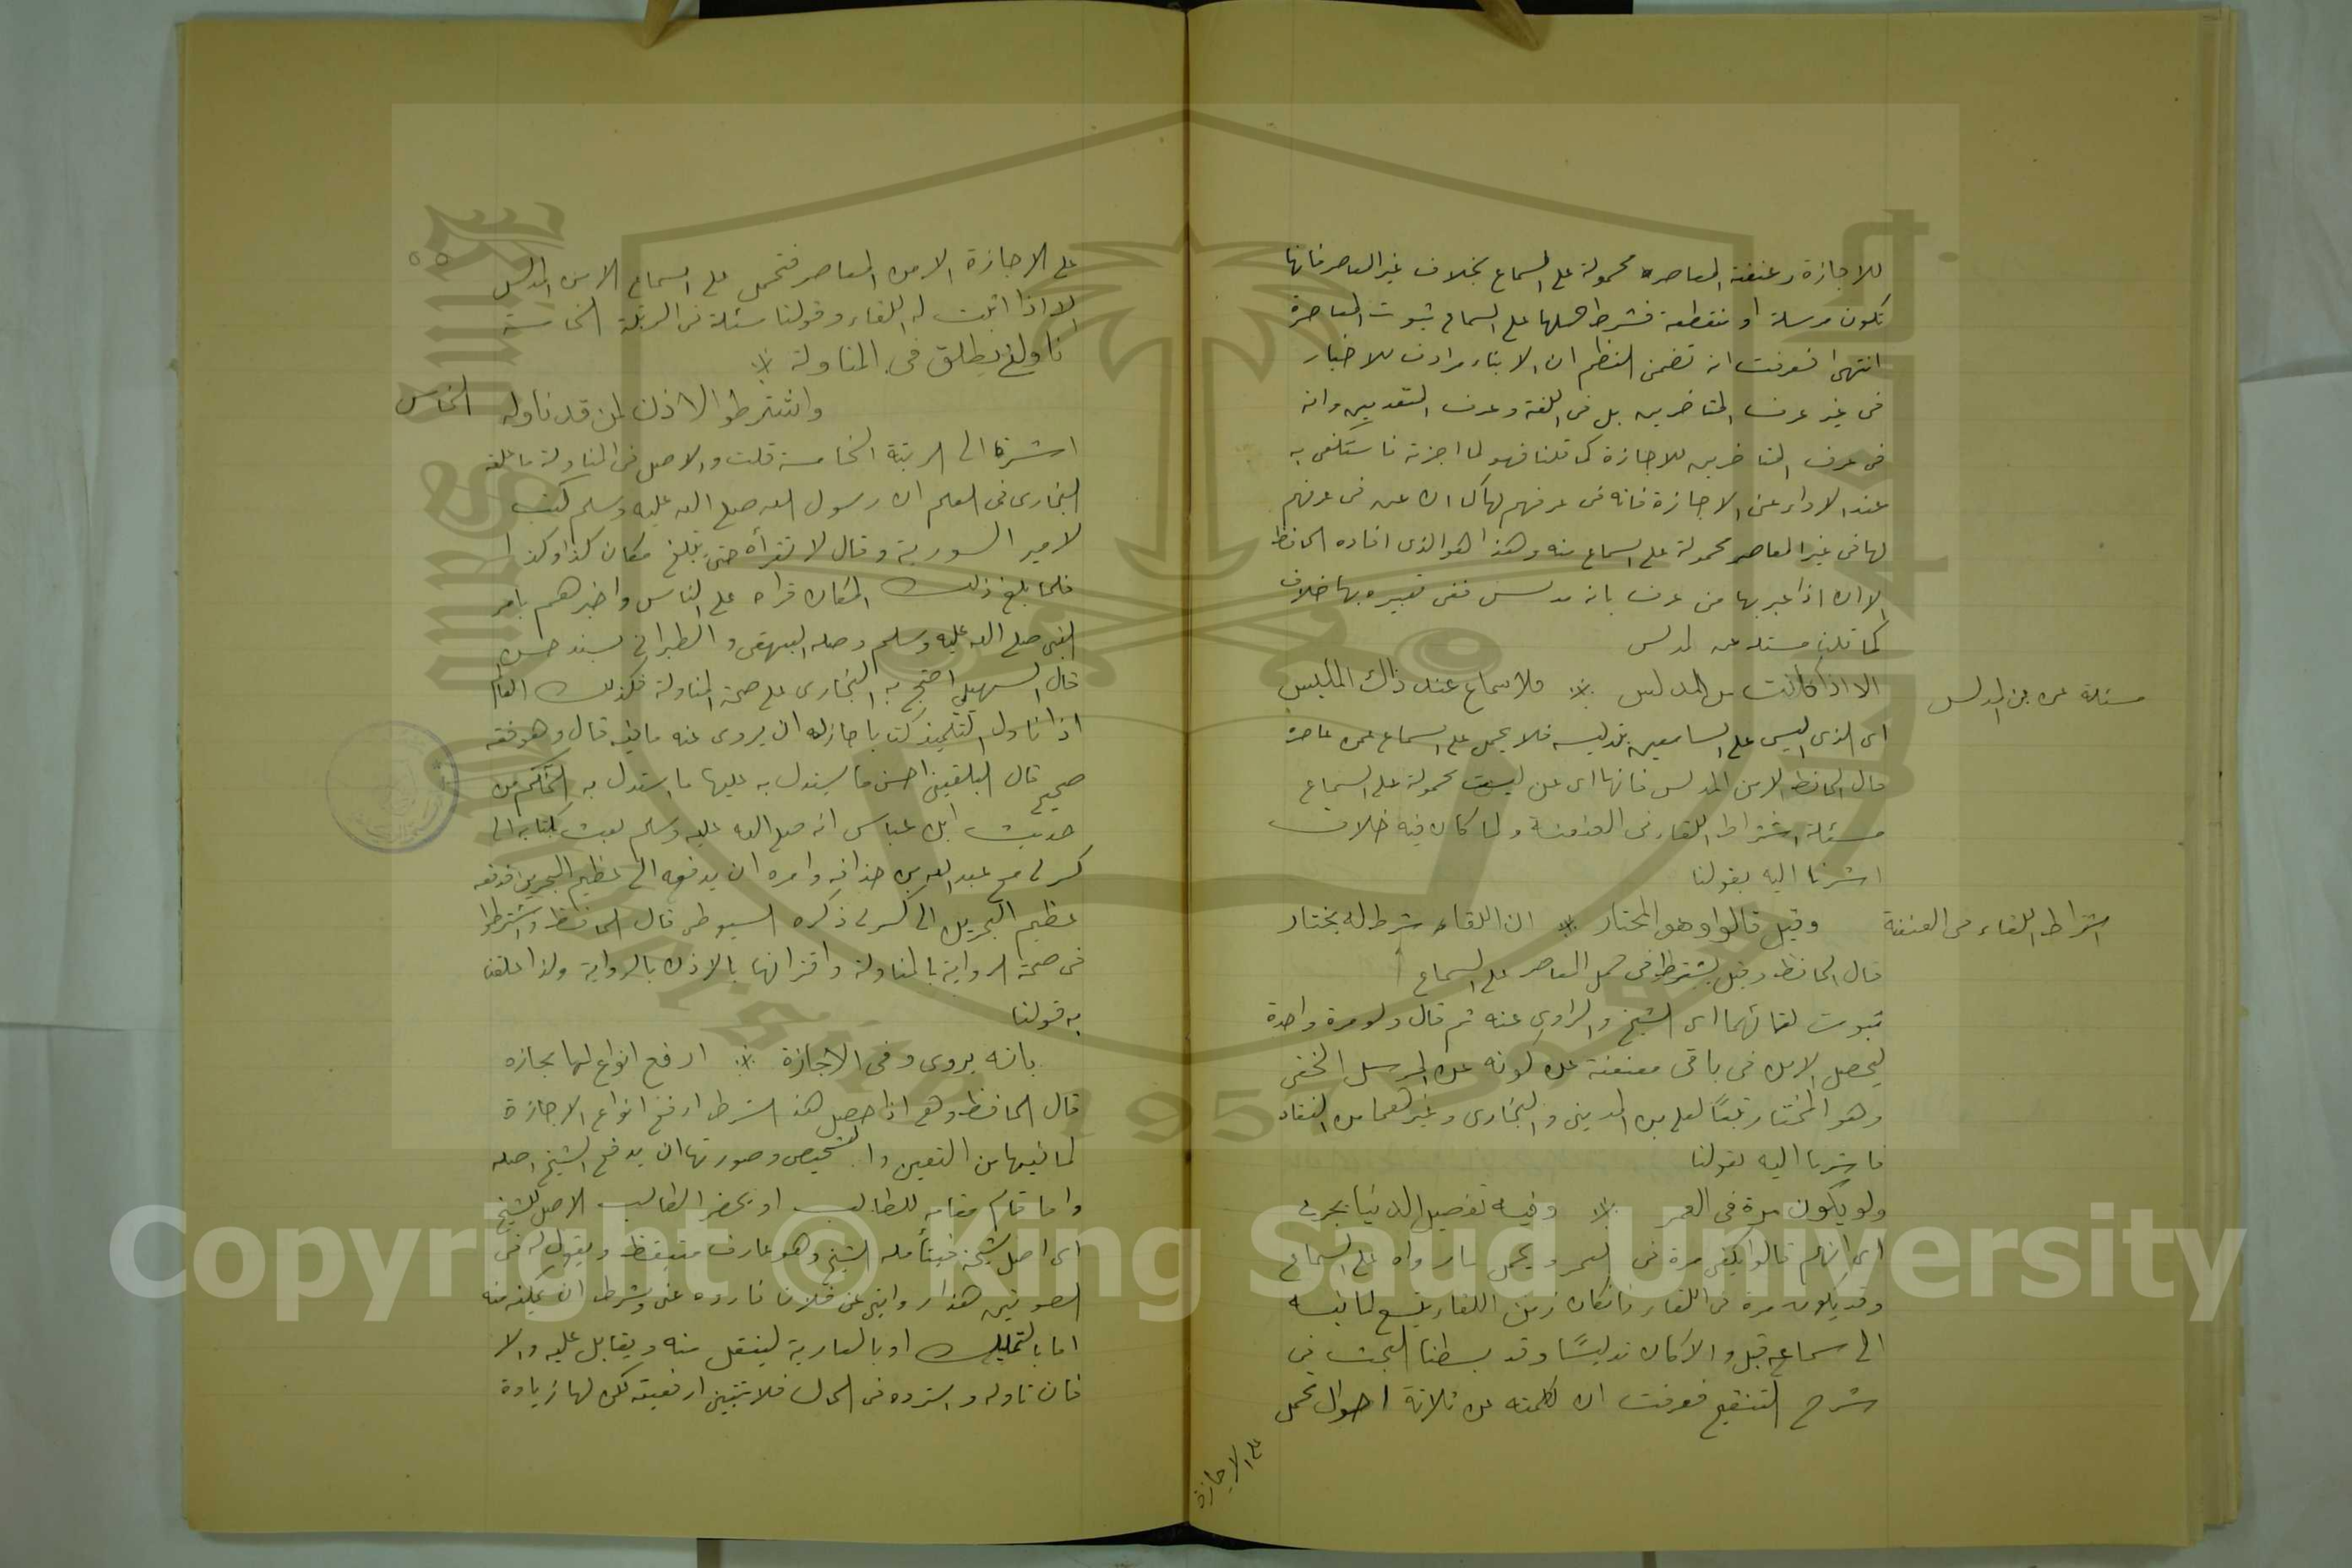 للاجازة وعنعنة المعاصره محمولة على السماع بخلاف غير المعاصر فانها
تكون مرسلة او منقطعة فشرط حملها على السماع ثبوت المعاصرة
انتهى فعرفت انه تضمن النظم ان الانباء مرادف للاخبار
فى غير عرف المتاخرين بل فى اللغة وعرف المتقدمين وانه
فى عرف المتاخرين للاجازة كما قلنا فهو لما اجزته فاستكفى به
عند الاداء عن الاجازة فانه فى عرفهم لها كما ان عن فى عرفهم
لها فى غير المعاصر محمولة على السماع منه وهذا هو الذى افاده الحافظ
الا ان اذا عبر بها من عرف بانه مدلس ففى تعبيره بها خلاف
كما قلنا مسئلة عن المدلس
مسئلة عن من المدلس
الا اذا كانت من المدلس ※ فلا سماع عند ذاك الملبس
اى الذى البس على السامعين بتدليسه فلا يحمل على السماع عمن عاصره
قال الحافظ الا من المدلس فانها اى عن ليست محمولة على السماع
مسئلة اشتراط اللقاء فى العنعنة ولما كان فيه خلاف
اشرنا اليه بقولنا
اشتراط اللقاء فى العنعنة
وقيل قالوا وهو المختار ※ ان اللقاء شرط له يختار
قال الحافظ وقيل يشترط فى حمل المعاصر على السماع
ثبوت لقائهما اى الشيخ والراوى عنه ثم قال ولو مرة واحدة
ليحصل الامن فى باقى معنعنة عن كونه من المرسل الخفى
وهو المختار تبعًا لعلى بن المدينى والبخارى وغيرهما من النقاد
فاشرنا اليه بقولنا
ولو يكون مرة فى العمر ※ وفيه تفصيل الدنيا يجرى
اى انهم قالوا يكفى مرة فى العمر ويحمل ما رواه على السماع
وقد يكون مرة فى اللقاء فان كان زمن اللقاء يتسع لما نسبه
الى سماعه قبل والا كان تدليسًا وقد بسطنا البحث فى
شرح التنقيح فعرفت ان لكلمته عن ثلاثة احوال تحمل
على الاجازة
٥٥
على الاجازة الا من المعاصر فتحمل على السماع الا من المدلس
الا اذا اثبت له اللقاء وقولنا مسئلة فى المرتبة الخامسة
ناولنى يطلق فى المناولة ※
واشترطوا الاذن لمن قد ناوله
الخامس
اشرة الى الرتبة الخامسة قلت والاصل فى المناولة ما علقه
البخارى فى العلم ان رسول الله صلى الله عليه وسلم كتب
لامير السورية وقال لا تقرأه حتى تبلغ مكان كذا وكذا
فلما بلغ ذلك المكان قراه على الناس واخبرهم بامر
النبى صلى الله عليه وسلم وصله البيهقى والطبرانى بسند حسن
قال السهيلى احتج به البخارى على صحة المناولة فكذلك العالم
اذا ناول التلميذ كتابا جاز له ان يروى عنه ما فيه قال وهو فقه
صحيح قال البلقينى احسن ما يستدل به عليها ما استدل به الحاكم من
حديث ابن عباس انه صلى الله عليه وسلم بعث بكتابه الى
كسرى مع عبد الله بن حذافه وامره ان يدفعه الى عظيم البحرين فدفعه
عظيم البحرين الى كسرى ذكره السيوطى قال الحافظ واشترطوا
فى صحة الرواية بالمناولة واقترانها بالاذن بالرواية ولذا علقنا
به قولنا
بانه يروى وفى الاجازة ※ ارفع انواع لها بجازه
قال الحافظ وهى اذا حصل هذا الشرط ارفع انواع الاجازة
لما فيها من التعيين والتشخيص وصورتها ان يدفع الشيخ اصله
واما قام مقامه للطالب او يحضر الطالب الاصل للشيخ
اى اصل شيخه فيتأمله الشيخ وهو عارف متيقظ ويقول له فى
الصورتين هذا روايتى عن فلان فاروه عنى وشرط ان يمكنه منه
اما بالتمليك او بالعارية لينقل منه ويقابل عليه والا
فان ناوله واسترده فى الحال فلا تتبين ارفعيته لكن لها زيادة
Copyright © King Saud University
1957